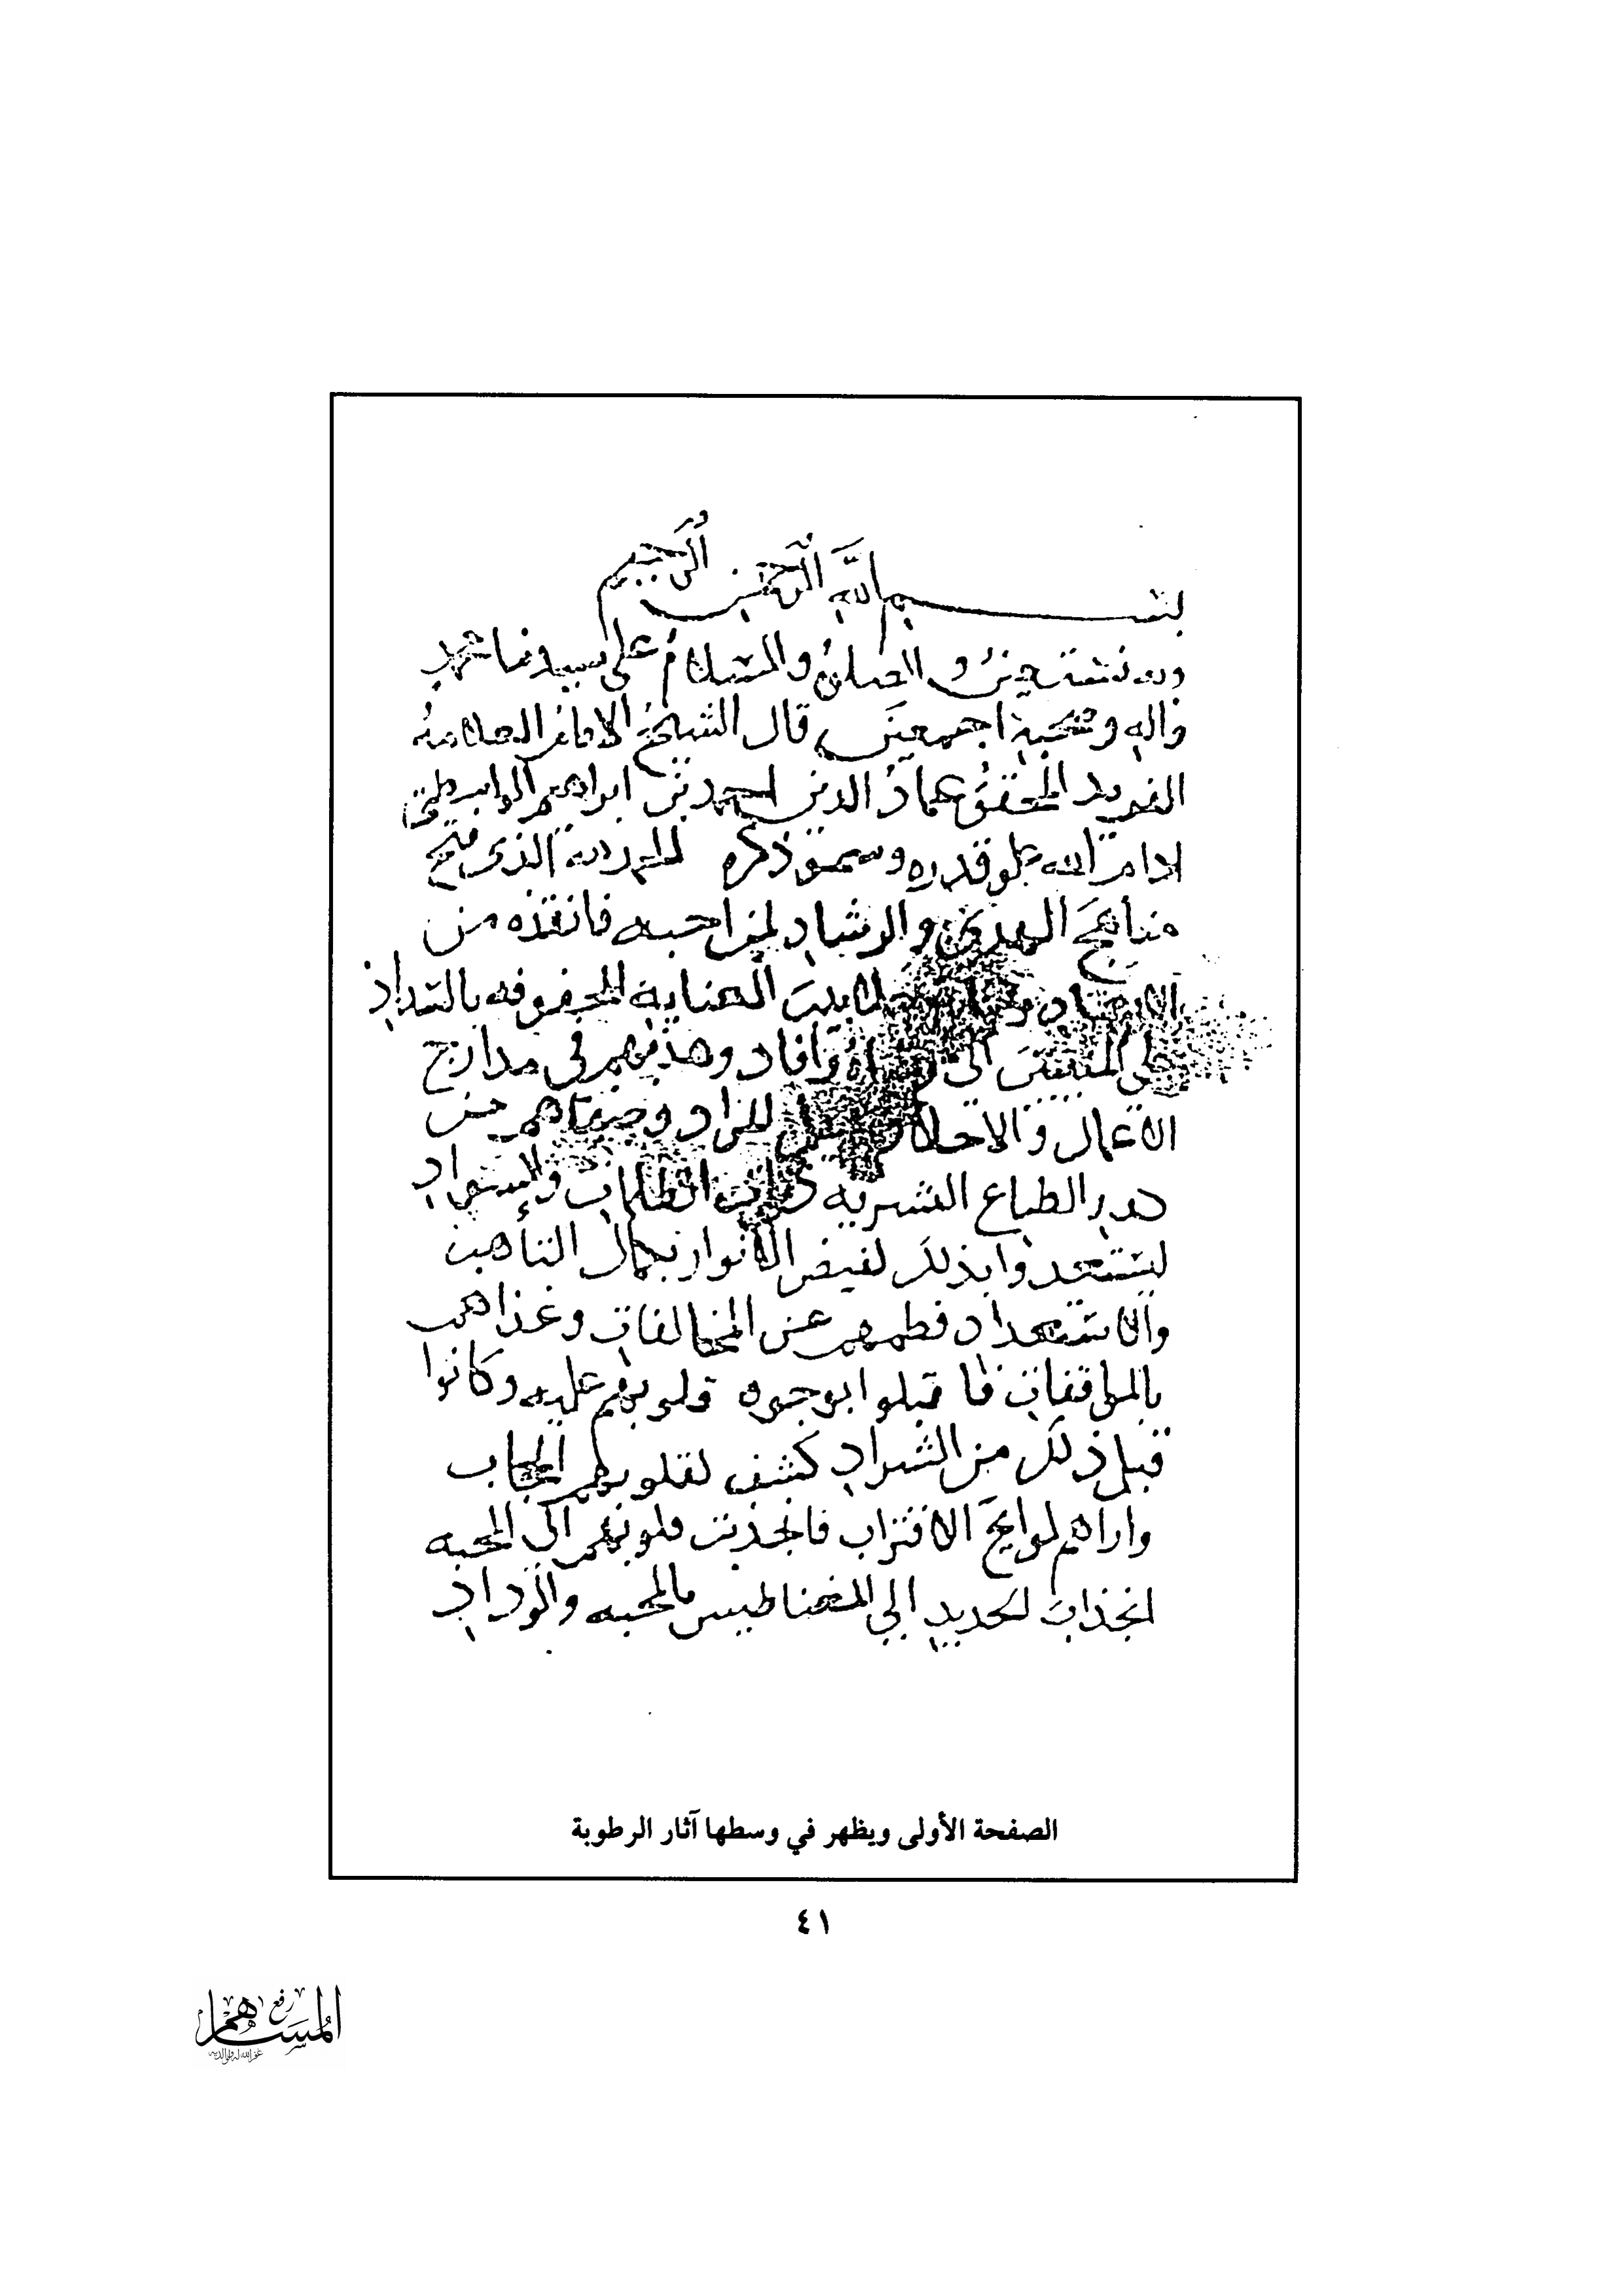 بسم الله الرحمن الرحيم
وبه نستعين والصلاة والسلام على سيدنا محمد
واله وصحبه اجمعين قال الشيخ الامام العلامة
الفريد المحقق عماد الدين احمد بن ابراهيم الواسطي
ادام الله علو قدره وسمو ذكره الحمد لله الذي فتح
مناهج الهدى والرشاد لمن احبه فانقذه من
العناية المحفوفه بالسداد
الى وافاد وهذبهم في مدارج
الاعمال والاحوال وصفاهم من
كدر الطباع البشريه ذوات الظلمات والسواد
ليستعدوا بذلك لفيض الانوار بكمال التأهب
والاستعداد فطمهم عن المخالفات وغذاهم
بالموافقات فاقبلوا بوجوه قلوبهم عليه وكانوا
قبل ذلك من الشراد كشف لقلوبهم الحجاب
واراهم لوايح الاقتراب فانجذبت قلوبهم الى المحبه
انجذاب الحديد الى المغناطيس بالمحبه والوداد
الصفحة الأولى ويظهر في وسطها آثار الرطوبة
٤١
رفع
المساهم
غفر الله له ولوالديه